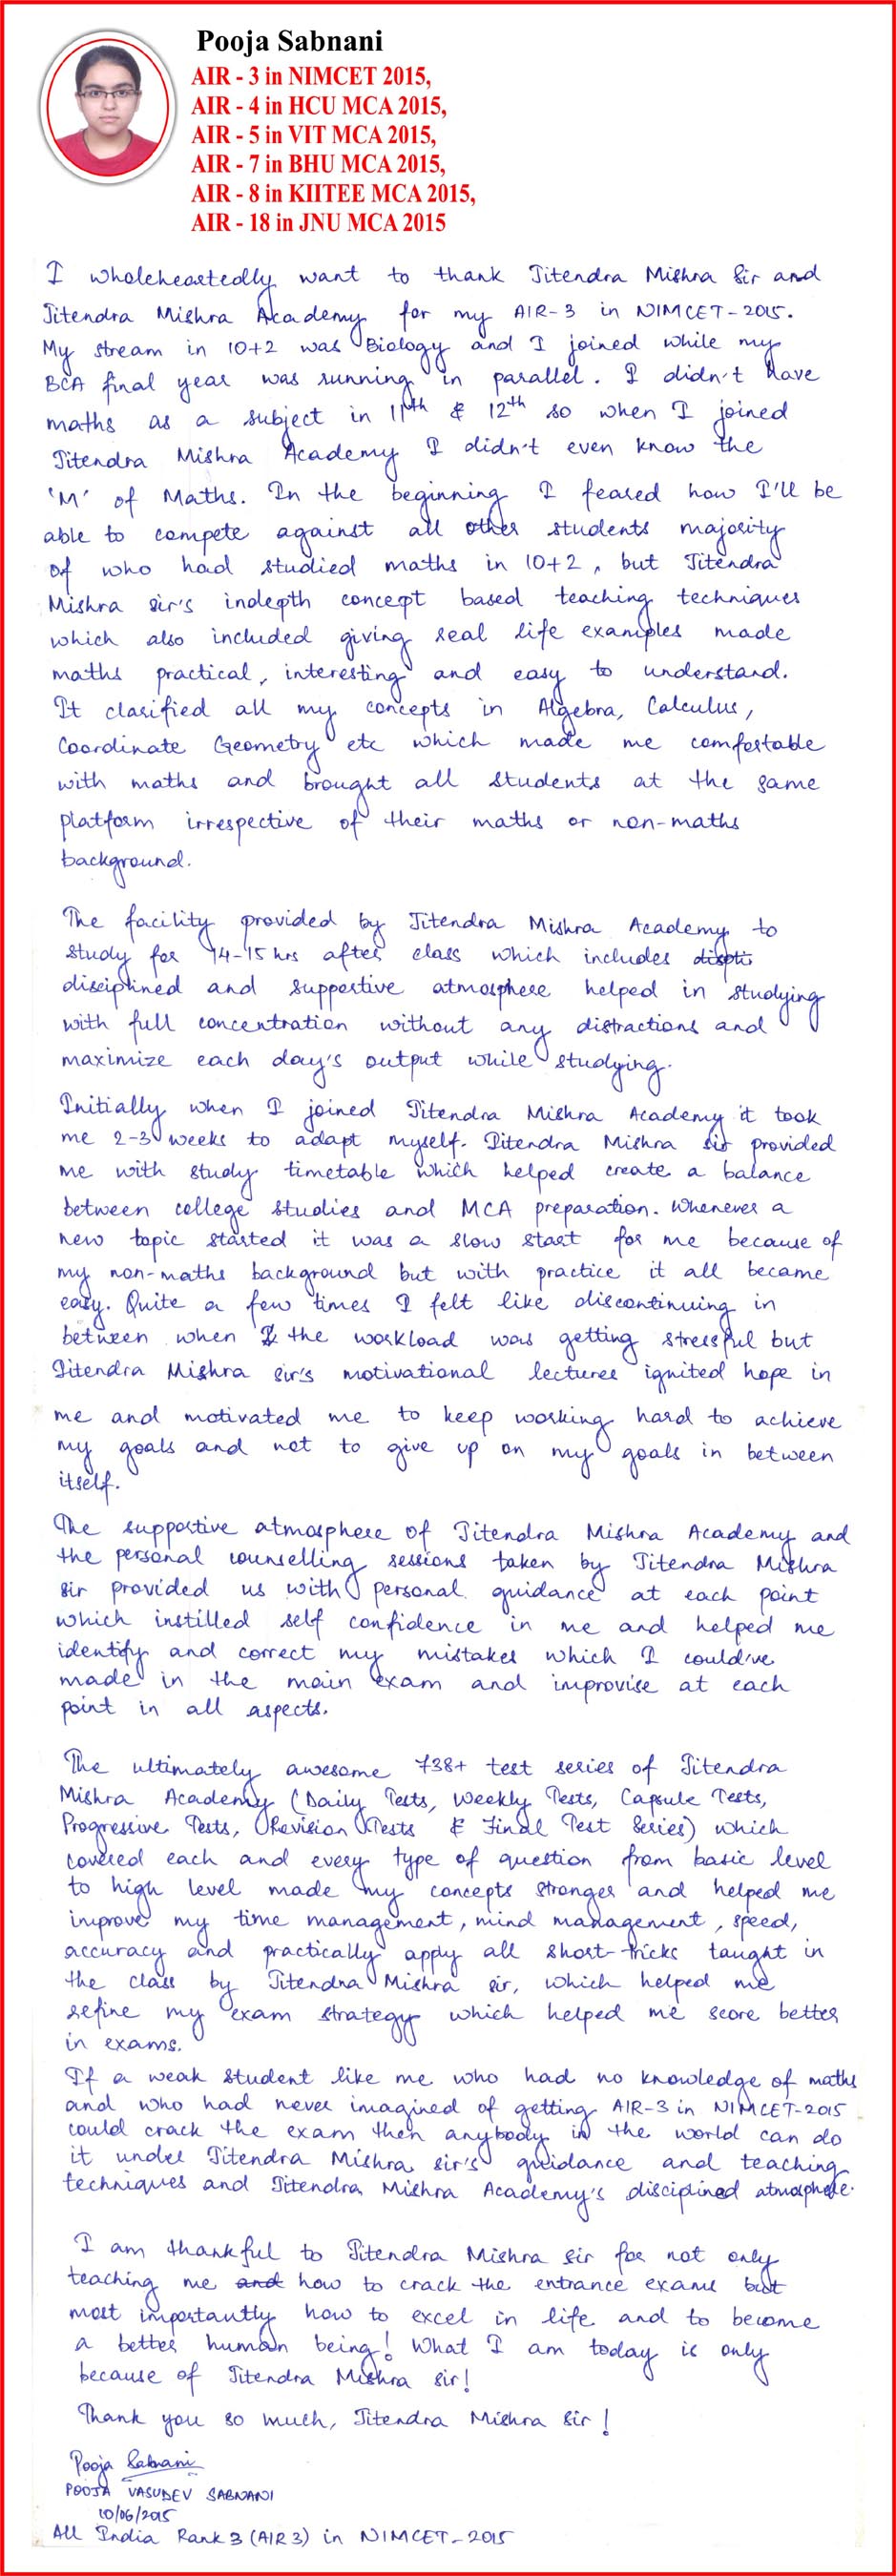 Pooja Sabnani
AIR - 3 in NIMCET 2015,
AIR - 4 in HCU MCA 2015,
AIR - 5 in VIT MCA 2015,
AIR - 7 in BHU MCA 2015,
AIR - 8 in KIITEE MCA 2015,
AIR - 18 in JNU MCA 2015
I wholeheartedly want to thank Jitendra Mishra Sir and
Jitendra Mishra Academy for my AIR-3 in NIMCET-2015.
My stream in 10+2 was Biology and I joined while my
BCA final year was running in parallel. I didn't have
maths as a subject in 11th & 12th so when I joined
Jitendra Mishra Academy I didn't even know the
'M' of Maths. In the beginning I feared how I'll be
able to compete against all other students majority
of who had studied maths in 10+2, but Jitendra
Mishra sir's indepth concept based teaching techniques
which also included giving real life examples made
maths practical, interesting and easy to understand.
It clarified all my concepts in Algebra, Calculus,
Coordinate Geometry etc which made me comfortable
with maths and brought all students at the same
platform irrespective of their maths or non-maths
background.
The facility provided by Jitendra Mishra Academy to
study for 14-15 hrs after class which includes
disciplined and supportive atmosphere helped in studying
with full concentration without any distractions and
maximize each day's output while studying.
Initially when I joined Jitendra Mishra Academy it took
me 2-3 weeks to adapt myself. Jitendra Mishra sir provided
me with study timetable which helped create a balance
between college studies and MCA preparation. Whenever a
new topic started it was a slow start for me because of
my non-maths background but with practice it all became
easy. Quite a few times I felt like discontinuing in
between when the workload was getting stressful but
Jitendra Mishra sir's motivational lectures ignited hope in
me and motivated me to keep working hard to achieve
my goals and not to give up on my goals in between
itself.
The supportive atmosphere of Jitendra Mishra Academy and
the personal counselling sessions taken by Jitendra Mishra
sir provided us with personal guidance at each point
which instilled self confidence in me and helped me
identify and correct my mistakes which I could've
made in the main exam and improvise at each
point in all aspects.
The ultimately awesome 738+ test series of Jitendra
Mishra Academy (Daily Tests, Weekly Tests, Capsule Tests,
Progressive Tests, Revision Tests & Final Test Series) which
covered each and every type of question from basic level
to high level made my concepts stronger and helped me
improve my time management, mind management, speed,
accuracy and practically apply all short-tricks taught in
the class by Jitendra Mishra sir, which helped me
refine my exam strategy which helped me score better
in exams.
If a weak student like me who had no knowledge of maths
and who had never imagined of getting AIR-3 in NIMCET-2015
could crack the exam then anybody in the world can do
it under Jitendra Mishra sir's guidance and teaching
techniques and Jitendra Mishra Academy's disciplined atmosphere.
I am thankful to Jitendra Mishra sir for not only
teaching me and how to crack the entrance exams but
most importantly how to excel in life and to become
a better human being! What I am today is only
because of Jitendra Mishra sir!
Thank you so much, Jitendra Mishra Sir!
Pooja Sabnani
POOJA VASUDEV SABNANI
10/06/2015
All India Rank 3 (AIR 3) in NIMCET-2015